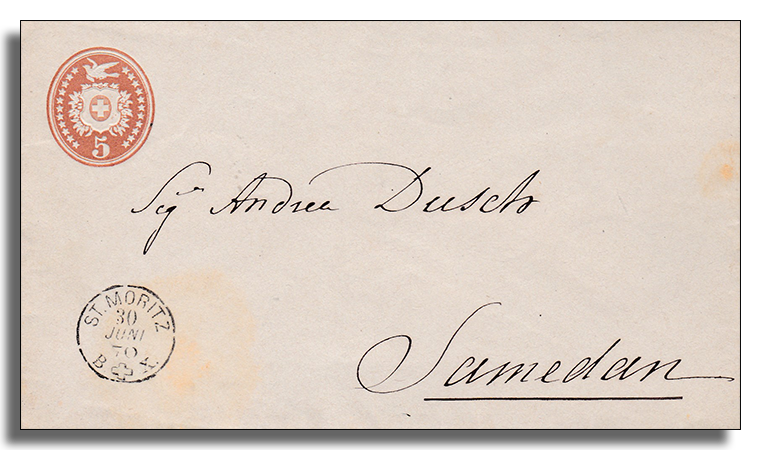 5
Sigr Andrea Dusch
ST. MORITZ
30
JUNI
70
B X.
Samedan